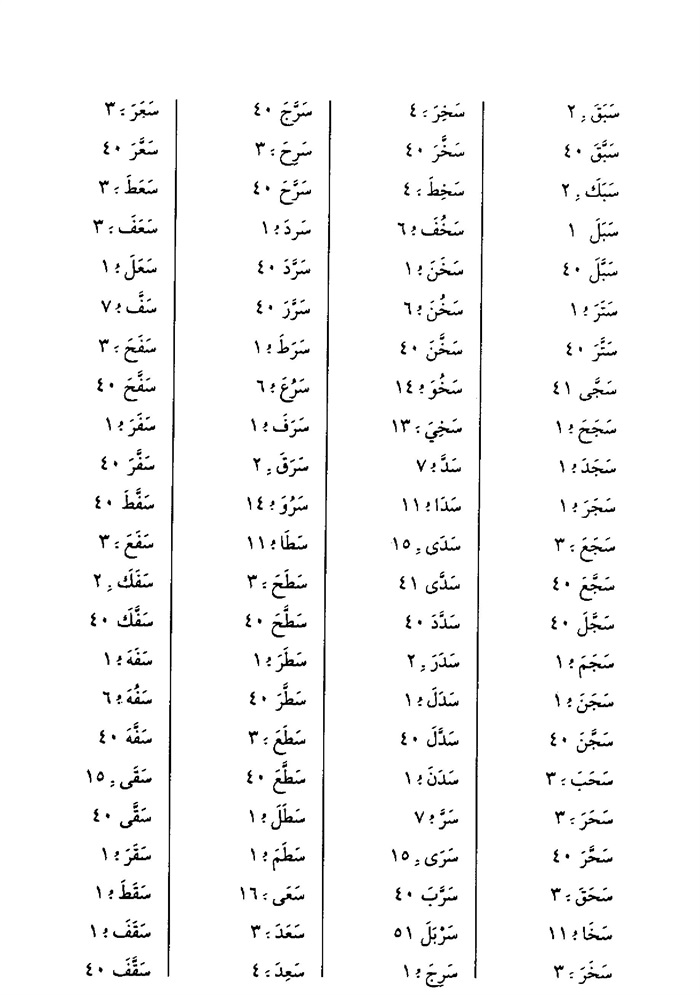 سَبَقَ ـِ ٢
سَبَّقَ ٤٠
سَبَكَ ـِ ٢
سَبَلَ ١
سَبَّلَ ٤٠
سَتَرَ ـُ ١
سَتَّرَ ٤٠
سَجَّى ٤١
سَجَحَ ـُ ١
سَجَدَ ـُ ١
سَجَرَ ـُ ١
سَجَعَ ـَ ٣
سَجَّعَ ٤٠
سَجَّلَ ٤٠
سَجَمَ ـُ ١
سَجَنَ ـُ ١
سَجَّنَ ٤٠
سَحَبَ ـَ ٣
سَحَرَ ـَ ٣
سَحَّرَ ٤٠
سَحَقَ ـَ ٣
سَخَا ـُ ١١
سَخَرَ ـَ ٣
سَخِرَ ـَ ٤
سَخَّرَ ٤٠
سَخِطَ ـَ ٤
سَخُفَ ـُ ٦
سَخَنَ ـُ ١
سَخُنَ ـُ ٦
سَخَّنَ ٤٠
سَخُوَ ـُ ١٤
سَخِيَ ـَ ١٣
سَدَّ ـُ ٧
سَدَا ـُ ١١
سَدَى ـِ ١٥
سَدَّى ٤١
سَدَّدَ ٤٠
سَدَرَ ـِ ٢
سَدَلَ ـُ ١
سَدَّلَ ٤٠
سَدَنَ ـُ ١
سَرَّ ـُ ٧
سَرَى ـِ ١٥
سَرَّبَ ٤٠
سَرْبَلَ ٥١
سَرِجَ ـُ ١
سَرَّجَ ٤٠
سَرِحَ ـَ ٣
سَرَّحَ ٤٠
سَردَ ـُ ١
سَرَّدَ ٤٠
سَرَّرَ ٤٠
سَرَطَ ـُ ١
سَرُعَ ـُ ٦
سَرَفَ ـُ ١
سَرَقَ ـِ ٢
سَرُوَ ـُ ١٤
سَطَا ـُ ١١
سَطَحَ ـَ ٣
سَطَّحَ ٤٠
سَطَرَ ـُ ١
سَطَّرَ ٤٠
سَطَعَ ـَ ٣
سَطَّعَ ٤٠
سَطَلَ ـُ ١
سَطَمَ ـُ ١
سَعَى ـَ ١٦
سَعَدَ ـَ ٣
سَعِدَ ـَ ٤
سَعَرَ ـَ ٣
سَعَّرَ ٤٠
سَعَطَ ـَ ٣
سَعَفَ ـَ ٣
سَعَلَ ـُ ١
سَفَّ ـُ ٧
سَفَحَ ـَ ٣
سَفَّحَ ٤٠
سَفَرَ ـُ ١
سَفَّرَ ٤٠
سَفَّطَ ٤٠
سَفَعَ ـَ ٣
سَفَكَ ـِ ٢
سَفَّكَ ٤٠
سَفَهَ ـُ ١
سَفُهَ ـُ ٦
سَفَّهَ ٤٠
سَقَى ـِ ١٥
سَقَّى ٤٠
سَقَرَ ـُ ١
سَقَطَ ـُ ١
سَقَفَ ـُ ١
سَقَّفَ ٤٠